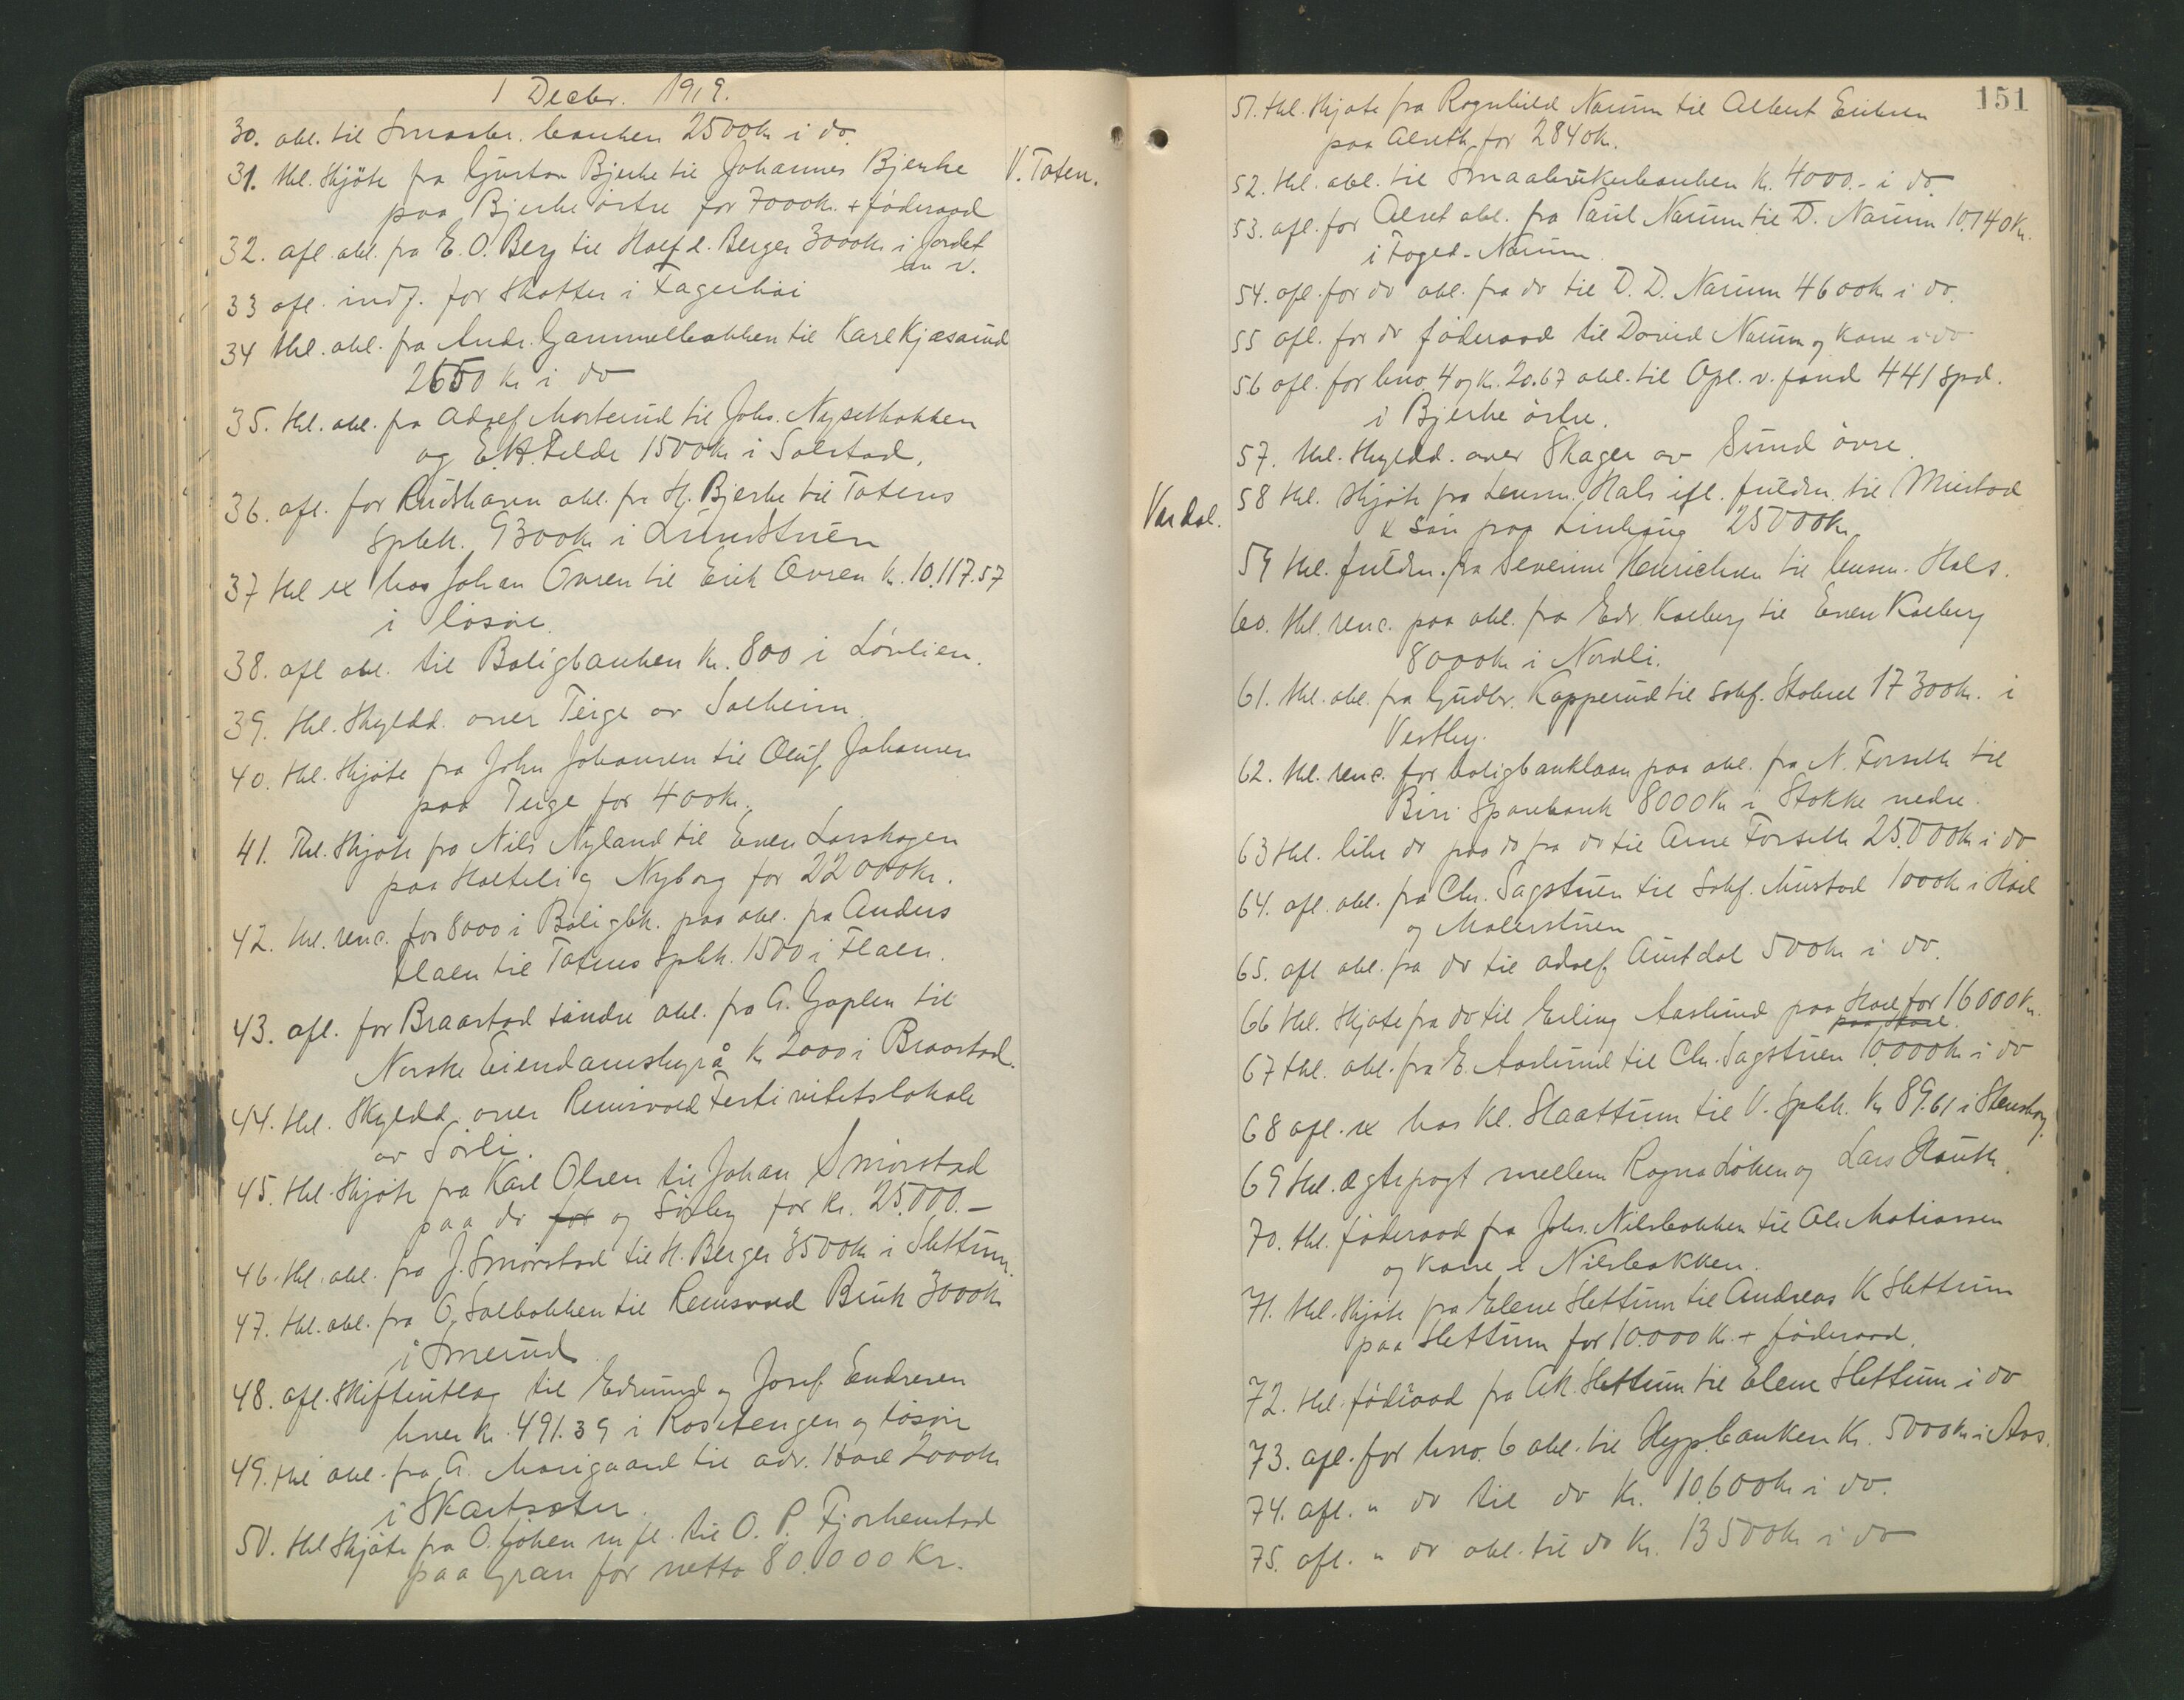 1 Decbr. 1919.
30. obl. til Smaabr. banken 2500 kr i do
31. thl. Skjöte fra Gustav Bjerke til Johannes Bjerke V. Toten.
paa Bjerke östre for 7000 kr. + föderaad
32. afl. obl. fra E. O. Berg til Berger 3000 kr i Jordet
33 afl. indf. for Skatter i Fagerhöi
34 thl. obl. fra Andr. Gammelbakken til Karl Kjæsarud
2650 kr i do
35. thl. obl. fra Adolf Morterud til Johs. Nysetbakken
og E. H. Felde 1500 kr i Solstad.
36. afl. for Rudshaven obl. fra H. Bjerke til Totens
Spbk. 9300 kr i Lundstuen
37 thl ex hos Johan Ovren til Erik Ovren kr. 10.117.57
i lösöre.
38. afl obl. til Boligbanken kr. 800 i Lövlien.
39. thl. Skyldd. over Teige av Solheim.
40. thl. Skjöte fra John Johansen til Oluf Johansen
paa Teige for 400 kr.
41. Thl. Skjöte fra Nils Nyland til Even Larshagen
paa Holteli og Nyborg for 22000 kr.
42. thl. renc. for 8000 i Boligbk. paa obl. fra Anders
Flaen til Totens Spbk. 1500 i Flaen.
43. afl. for Braastad söndre obl. fra A. Gaplen til
Norske Eiendomsbyrå kr 2000 i Braastad.
44. thl. Skyldd. over Reinsvoll Festivitetslokale
av Sörli.
45. thl. Skjöte fra Karl Olsen til Johan Smörstad
paa do for og Sörby for kr. 25.000.-
46. thl. obl. fra J. Smörstad til H. Berger 3500 kr i Slettum.
47. thl. obl. fra O. Solbakken til Reinsvoll Bruk 3000 kr
i Smerud
48. afl. Skifteutlæg til Edmund og Josef Endresen
hver kr. 491.39 i Rositengen og lösöre
49. thl obl. fra A. Marigaard til adv. Hoel 2000 kr
i Skartsæter.
50. thl Skjöte fra O. Löken m fl. til O. P. Fjorkenstad
paa Gran for netto 80.000 Kr.
151
51. thl. Skjöte fra Ragnhild Narum til Albert Eriksen
paa Alseth for 2840 kr.
52. thl. obl. til Smaabrukerbanken kr. 4000.- i do
53. afl. for Alset obl. fra Paul Narum til D. Narum 10.140 kr.
i Foged-Narum.
54. afl. for do obl. fra do til D. D. Narum 4600 kr i do.
55 afl. for do föderaad til David Narum og kone i do
56 afl. for bno. 4 og kr. 20.67 obl. til Opl. v. fond 441 Spd.
i Bjerke östre.
57. thl. Skyldd. over Skager av Sund övre.
Vardal.
58 thl. Skjöte fra Lensm. Hals ifl. fuldm. til Mustad
& sön paa Linhaug 25000 kr
59 thl. fuldm. fra Severine Henrichsen til lensm. Hals.
60. thl. renc. paa obl. fra Edv. Kolberg til Even Kolberg
8000 kr i Nordli.
61. thl. obl. fra Gudbr. Kopperud til sakf. 17300 kr. i
Vestby.
62. thl. renc. for boligbanklaan paa obl. fra N. Forseth til
Biri Sparebank 8000 kr i Stokke nedre.
63 thl. like do paa do fra do til Arne Forseth 25.000 kr i do
64. afl. obl. fra Chr. Sagstuen til Sakf. Mustad 1000 kr i Hoel
og Malerstuen
65. afl obl. fra do til Adolf Austdal 500 kr i do.
66 thl. Skjöte fra do til Erling Aaslund paa Hoel for 16000 kr.
paa Hoel
67 thl. obl. fra E. Aaslund til Chr. Sagstuen 10.000 kr i do
68 afl. ex hos Kl. Slaattum til V. Spbk. kr 89.61 i Stensborg.
69 thl. ægtepagt mellem Ragna Löken og Lars
70. thl. föderaad fra Johs. Nilsbakken til Ole Matiassen
og kone i Nilsbakken.
71. thl. Skjöte fra Elene Slettum til Andreas K Slettum
paa Slettum for 10.000 Kr. + föderaad.
72. thl. föderaad fra A.K. Slettum til Elene Slettum i do
73. afl. for bno. 6 obl. til Hyp.banken Kr. 5000 kr i Aas.
74. afl. " do til do Kr. 10.600 kr i do.
75. afl. " do obl. til do Kr. 13500 kr i do